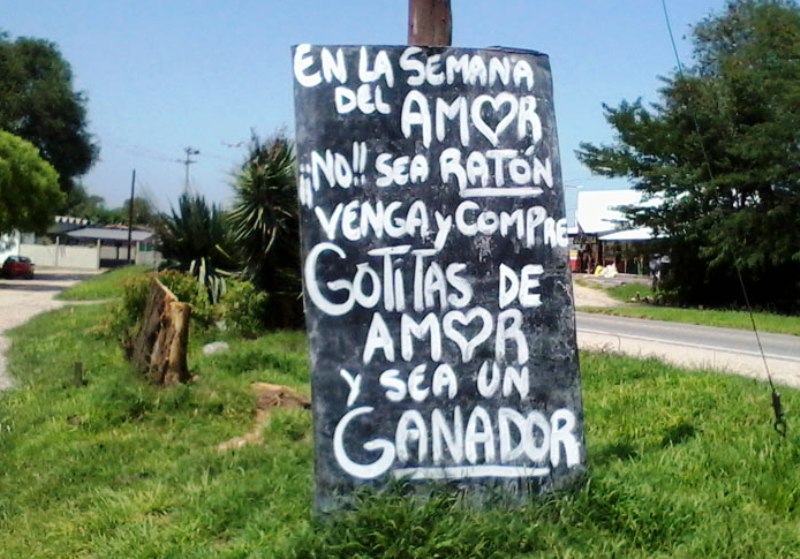 EN LA SEMANA
DEL AMOR
¡¡NO!! SEA RATÓN
VENGA Y COMPRE
GOTITAS DE
AMOR
Y SEA UN
GANADOR